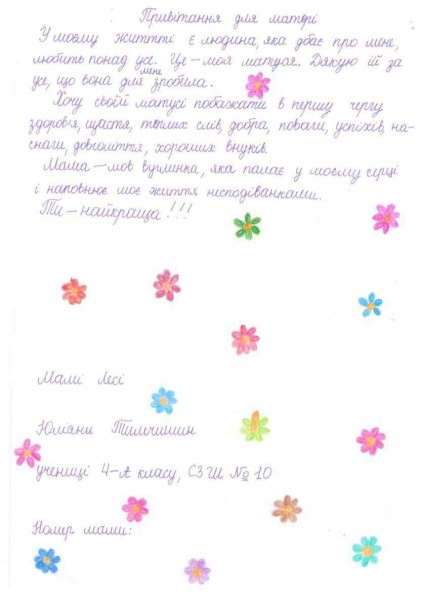 Привітання для матері
У моєму житті є людина, яка дбає про мене,
любить понад усе. Це – моя матуся. Дякую їй за
усе, що вона для мене зробила.
Хочу своїй матусі побажати в першу чергу
здоров'я, щастя, теплих слів, добра, поваги, успіхів, на-
снаги, довголіття, хороших внуків.
Мама – мов вуглинка, яка палає у моєму серці
і наповнює моє життя несподіванками.
Ти – найкраща!!!
Мамі Лесі
Юліани Тимчишин
учениці 4-А класу, СЗШ № 10
Номер мами: